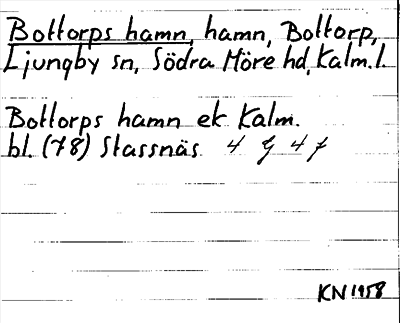 Bottorps hamn, hamn, Bottorp,
Ljungby sn, Södra Möre hd, Kalm. l.
Bottorps hamn ek Kalm.
bl. (78) Stassnäs 4 g 4 f
KN 1958